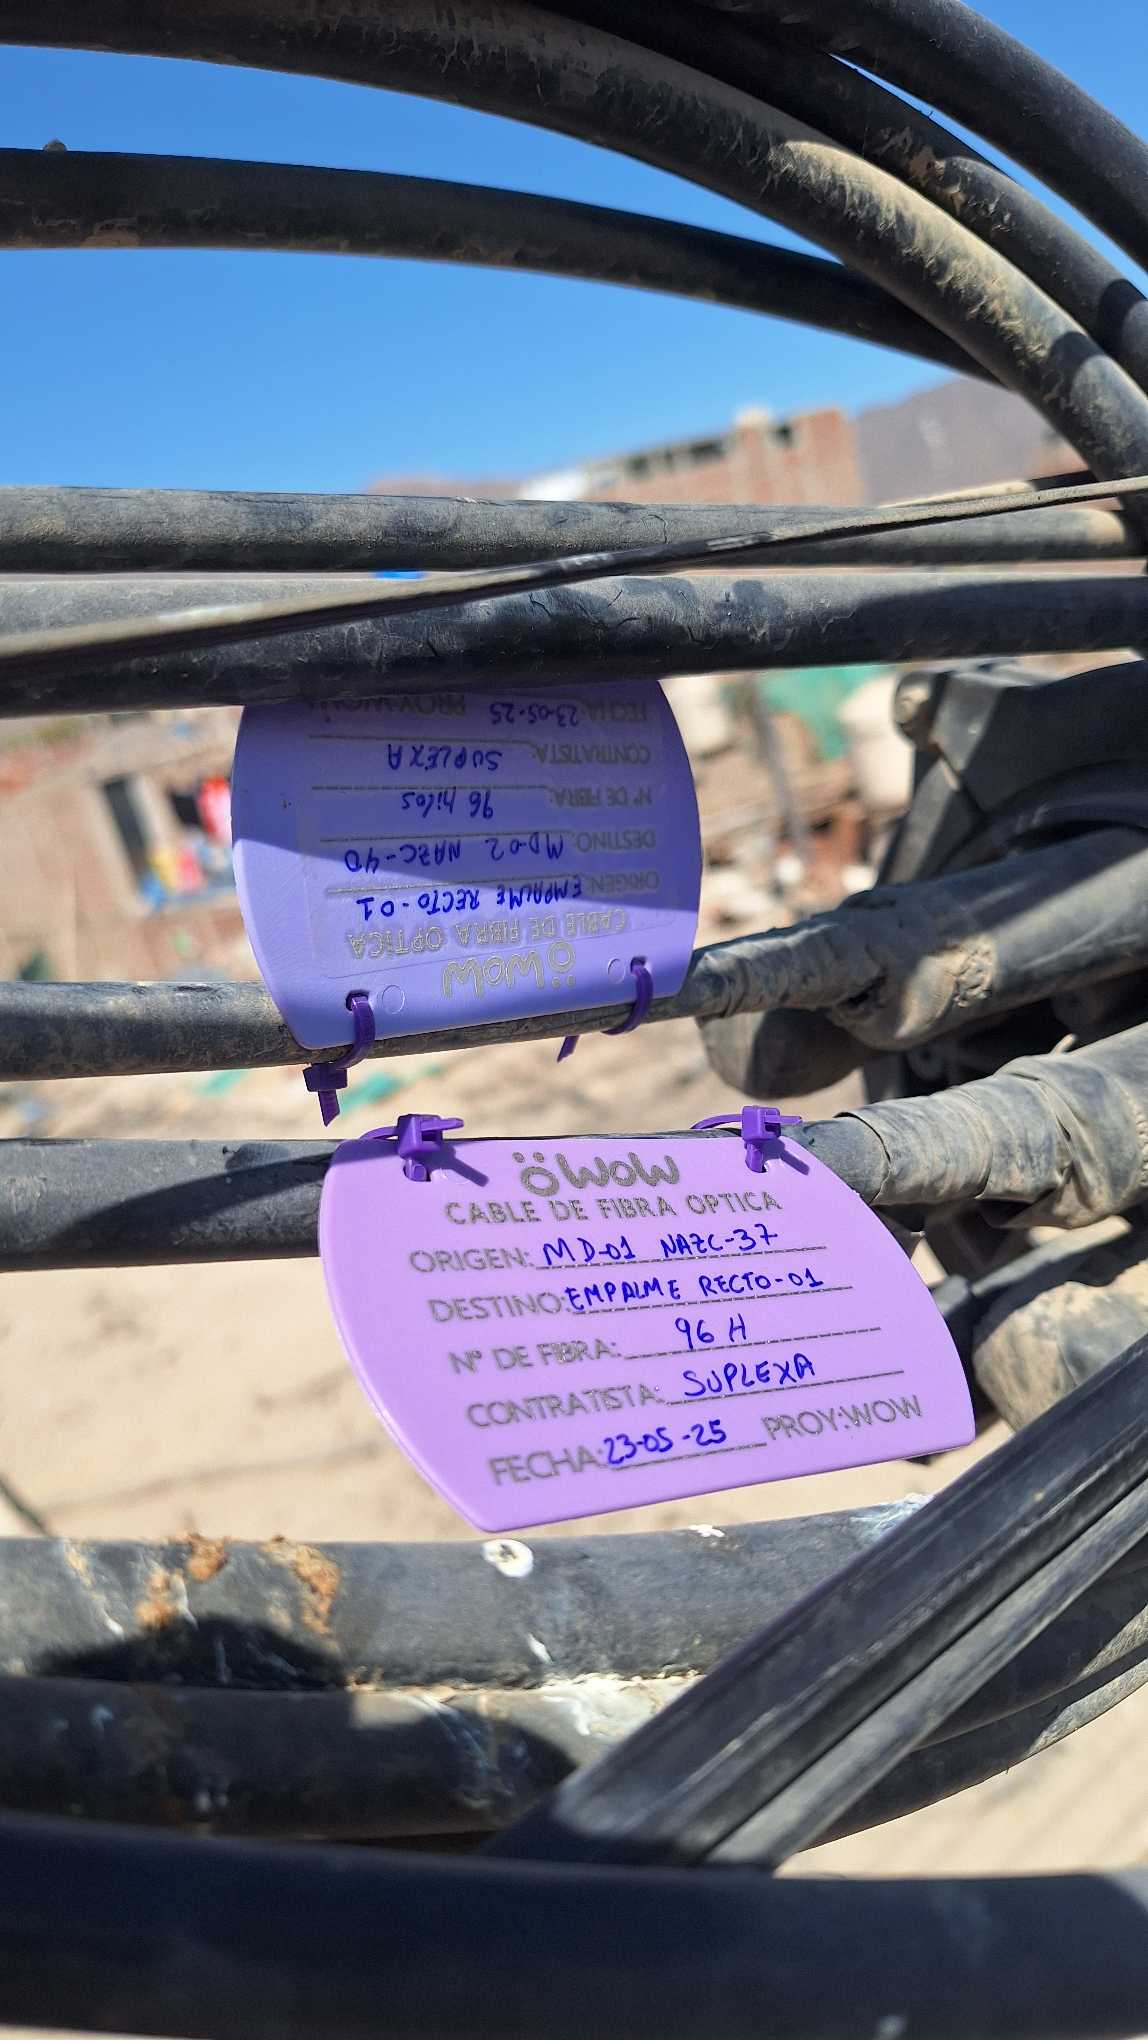 WOW
CABLE DE FIBRA OPTICA
ORIGEN: EMPALME RECTO-01
DESTINO: MD-02 NAZC-40
N° DE FIBRA: 96 hilos
CONTRATISTA: SUPLEXA
FECHA: 23-05-25 PROY:WOW
WOW
CABLE DE FIBRA OPTICA
ORIGEN: MD-01 NAZC-37
DESTINO: EMPALME RECTO-01
N° DE FIBRA: 96 H
CONTRATISTA: SUPLEXA
FECHA: 23-05-25 PROY:WOW